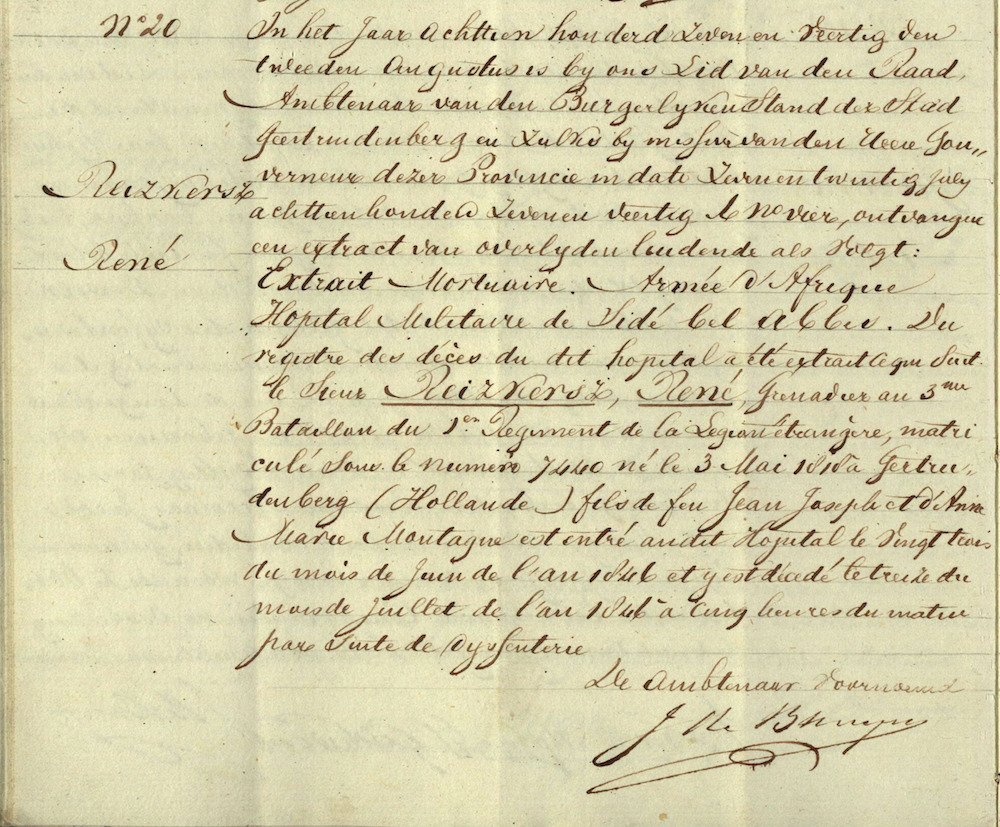 No 20
In het Jaar achttien honderd zeven en veertig den
tweeden Augustus is by ons Lid van den Raad,
Ambtenaar van den Burgerlyken Stand der Stad
Geertruidenberg en zulks by missive van den Heere Gou„
verneur dezer Provincie in dato zeven en twintig July
achttien honderd zeven en veertig No vier, ontvangen
een extract van overlyden luidende als volgt:
Reizkersz
René
Extrait Mortuaire. Armée d'Afrique
Hopital Militaire de Sidé bel abbes. Du
registre des décès du dit hopital a été extrait ce qui suit.
le Sieur Reizkersz, René, Grenadier au 3me
Bataillon du 1er Regiment de la Legion étrangère, matri
culé sous le numéro 7440 né le 3 Mai 1818 à Gertru„
denberg (Hollande) fils de feu Jean Joseph et d'Anne
Marie Montagne est entré audit Hopital le vingt trois
du mois de Juin de l'an 1846 et y est décédé le treize du
mois de Juillet de l'an 1846 à cinq heures du matin
par suite de dyssenterie
De Ambtenaar voornoemd